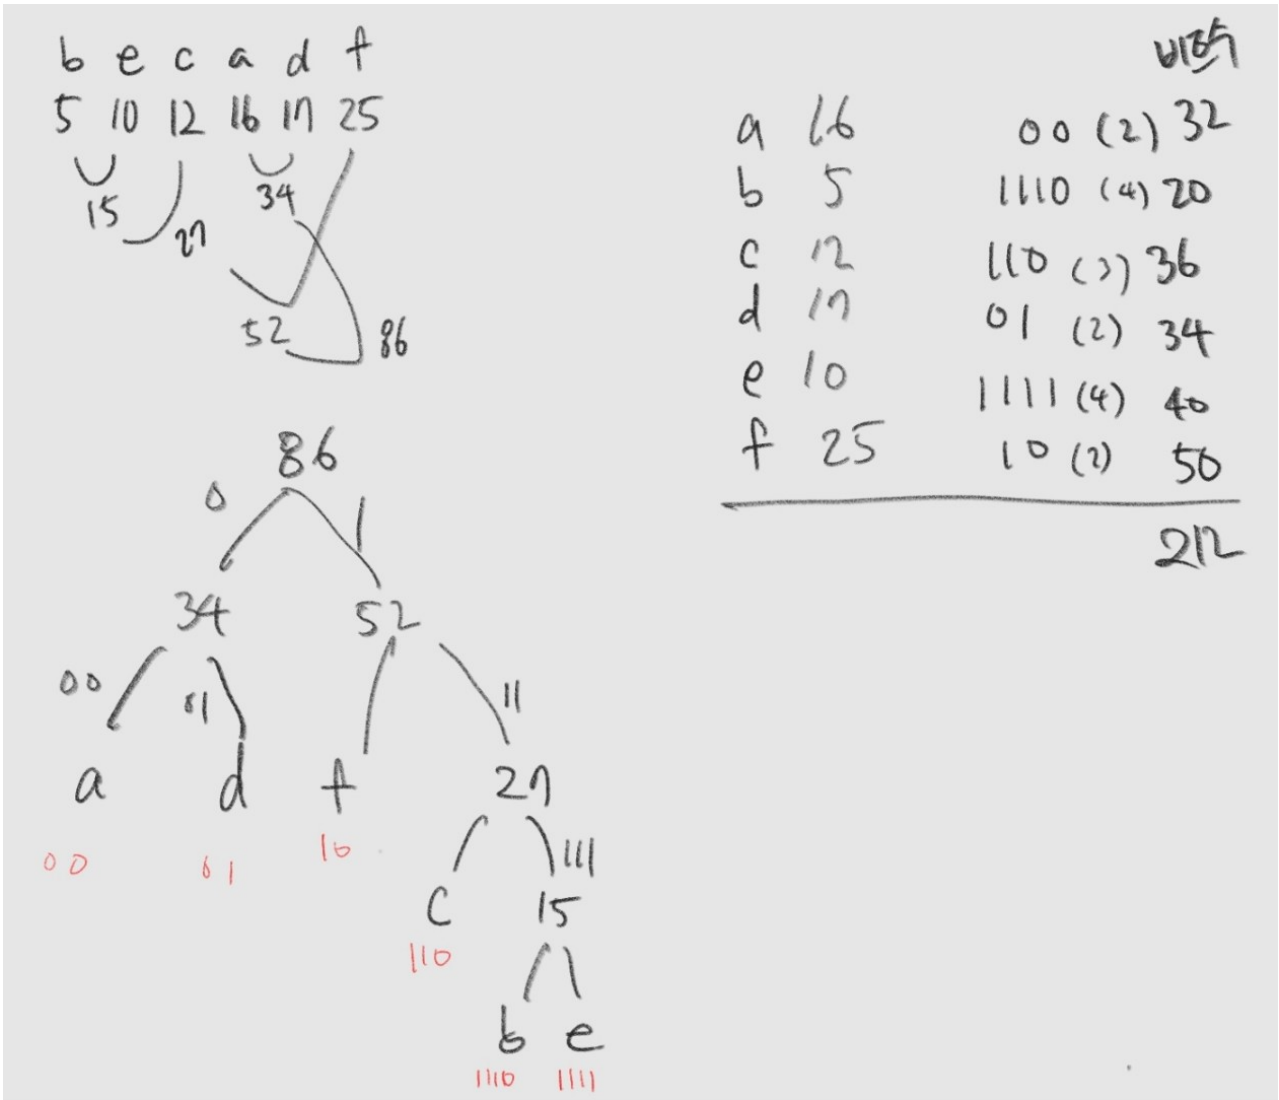 b e c a d f
5 10 12 16 17 25
15 34
27
52 86
86
0 1
34 52
00 01 11
a d f 27
00 01 10
111
c 15
110
b e
1110 1111
비트수
a 16 00 (2) 32
b 5 1110 (4) 20
c 12 110 (3) 36
d 17 01 (2) 34
e 10 1111 (4) 40
f 25 10 (2) 50
212